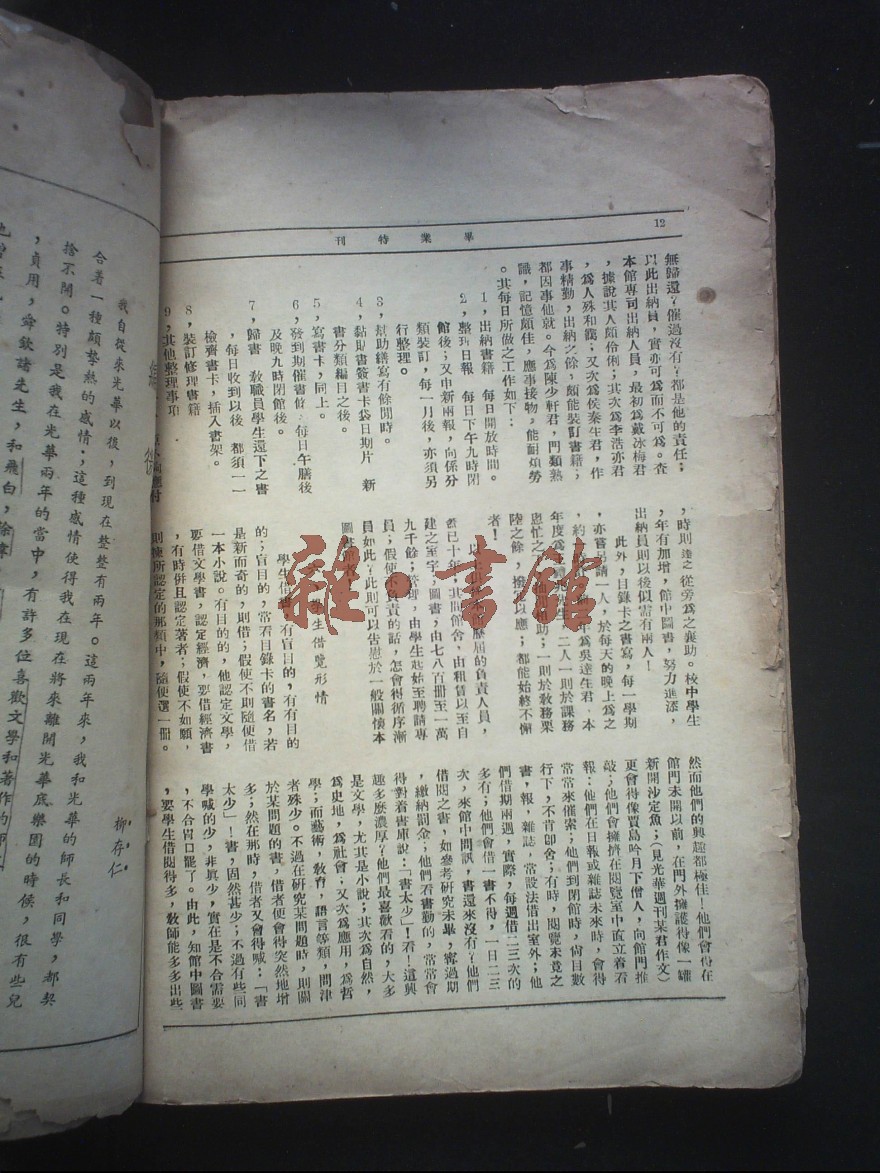 12
畢業特刊
無歸還?催過沒有?都是他的責任;
以此出納員,實亦可爲而不可爲。查
本館專司出納人員,最初爲戴冰梅君
,據說其人頗伶俐;其次爲李浩亦君
,爲人殊和藹;又次爲侯秦生君,作
事精勤,出納之餘,頗能裝訂書籍;
都因事他就。今爲陳少軒君,門類熟
識,記憶頗佳,應事接物,能耐煩勞
。其每日所做之工作如下:
1,出納書籍 每日開放時間。
2,整理日報 每日下午九時閉
館後;又申新兩報,向係分
類裝訂,每一月後,亦須另
行整理。
3,幫助繕寫有餘閒時。
4,黏貼書簽書卡袋日期片 新
書分類編目之後。
5,寫書卡,同上。
6,發到期催書條 每日午膳後
及晚九時閉館後。
7,歸書 教職員學生還下之書
,每日收到以後 都須一一
檢齊書卡,插入書架。
8,裝訂修理書籍
9,其他整理事項
,時則 從旁爲之襄助。校中學生
,年有加增,館中圖書,努力進添,
出納員則以後似需有兩人!
此外,目錄卡之書寫,每一學期
,亦嘗另請一人,於每天的晚上爲之
,約 年爲吳達生君,本
年度爲 二人一則於課務
悤忙之 相助;一則於教務栗
陸之餘,撥 以應;都能始終不懈
者!
以上 歷屆的負責人員,
舊已十年;其間館舍,由租賃以至自
建之室宇,圖書,由七八百冊至一萬
九千餘;管習,由學生起始至聘請專
員;假使不負責的話,怎會得循序漸
 如此?此則可以告慰於一般關懷本
圖書館者
 學生借覽形情
學生借書,有盲目的,有有目的
的;盲目的,常看目錄卡的書名,若
是新而奇的,則借;假使不則隨便借
一本小說。有目的的,他認定文學,
要借文學書,認定經濟,要借經濟書
,有時併且認定著者;假使不如願,
則揀所認定的那類中,隨便選一冊。
然而他們的興趣都極佳!他們會得在
館門未開以前,在門外擁護得像一罐
新開沙定魚;(見光華週刊某君作文)
更會得像賈島吟月下僧人,向館門推
敲;他們會擁擠在閱覽室中直立着看
報;他們在日報或雜誌未來時,會得
常常來催索;他們到閉館時,尙目數
行下,不肯卽舍;有時,閱覽未竟之
書,報,雜誌,常設法借出室外;他
們借期兩週,實際,每週借二三次的
多有;他們會借一書不得,一日二三
次,來館中問訊,書還來沒有?他們
借閱之書,如參考研究未畢,寗過期
,繳納罰金;他們看書勤的,常常會
得對着書庫說:「書太少」!看!這興
趣多麼濃厚?他們最喜歡看的,大多
是文學,尤其是小說;其次爲自然,
爲史地,爲社會;又次爲應用,爲哲
學;而藝術,教育,語言等類,問津
者殊少。不過在硏究某問題時,則關
於某問題的書,借者便會得突然地增
多;然在那時,借者又會得喊:「書
太少」!書,固然甚少;不過有些同
學喊的少,非眞少,實在是不合需要
,不合胃口罷了。由此,知館中圖書
,要學生借閱得多,教師能多多出些
柳存仁
我自從來光華以後,到現在整整有兩年。這兩年來,我和光華的師長和同學,都契
合着一種顛摯熱的感情;這種感情使得我在現在將來離開光華底樂園的時候,很有些兒
捨不開。特別是我在光華兩年的當中,有許多位喜歡文學和著作的
,貞用,舜欽諸先生,和飛白,
雜·書館